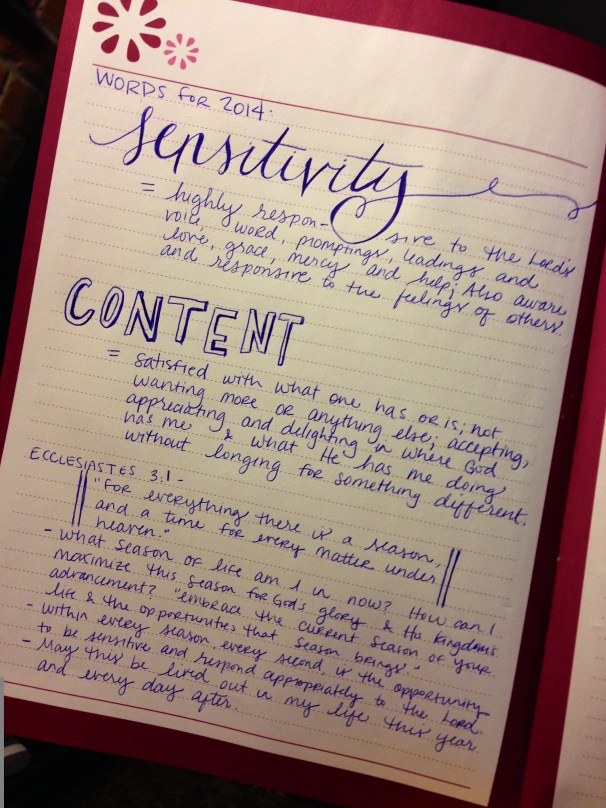 WORDS FOR 2014:
sensitivity
= highly respon- sive to the Lord's
voice, word, promptings, leadings and
love, grace, mercy and help; Also aware
and responsive to the feelings of others.
CONTENT
= satisfied with what one has or is; not
wanting more or anything else; accepting,
appreciating and delighting in where God
has me & what He has me doing
without longing for something different.
ECCLESIASTES 3:1 -
"For everything there is a season,
and a time for every matter under
heaven."
- What season of life am I in now? How can I
maximize this season for God's glory & His Kingdom's
advancement? "embrace the current season of your
life & the opportunities that season brings."
- Within every season, every second, is the opportunity
to be sensitive and respond appropriately to the Lord.
- May this be lived out in my life this year
and every day after.